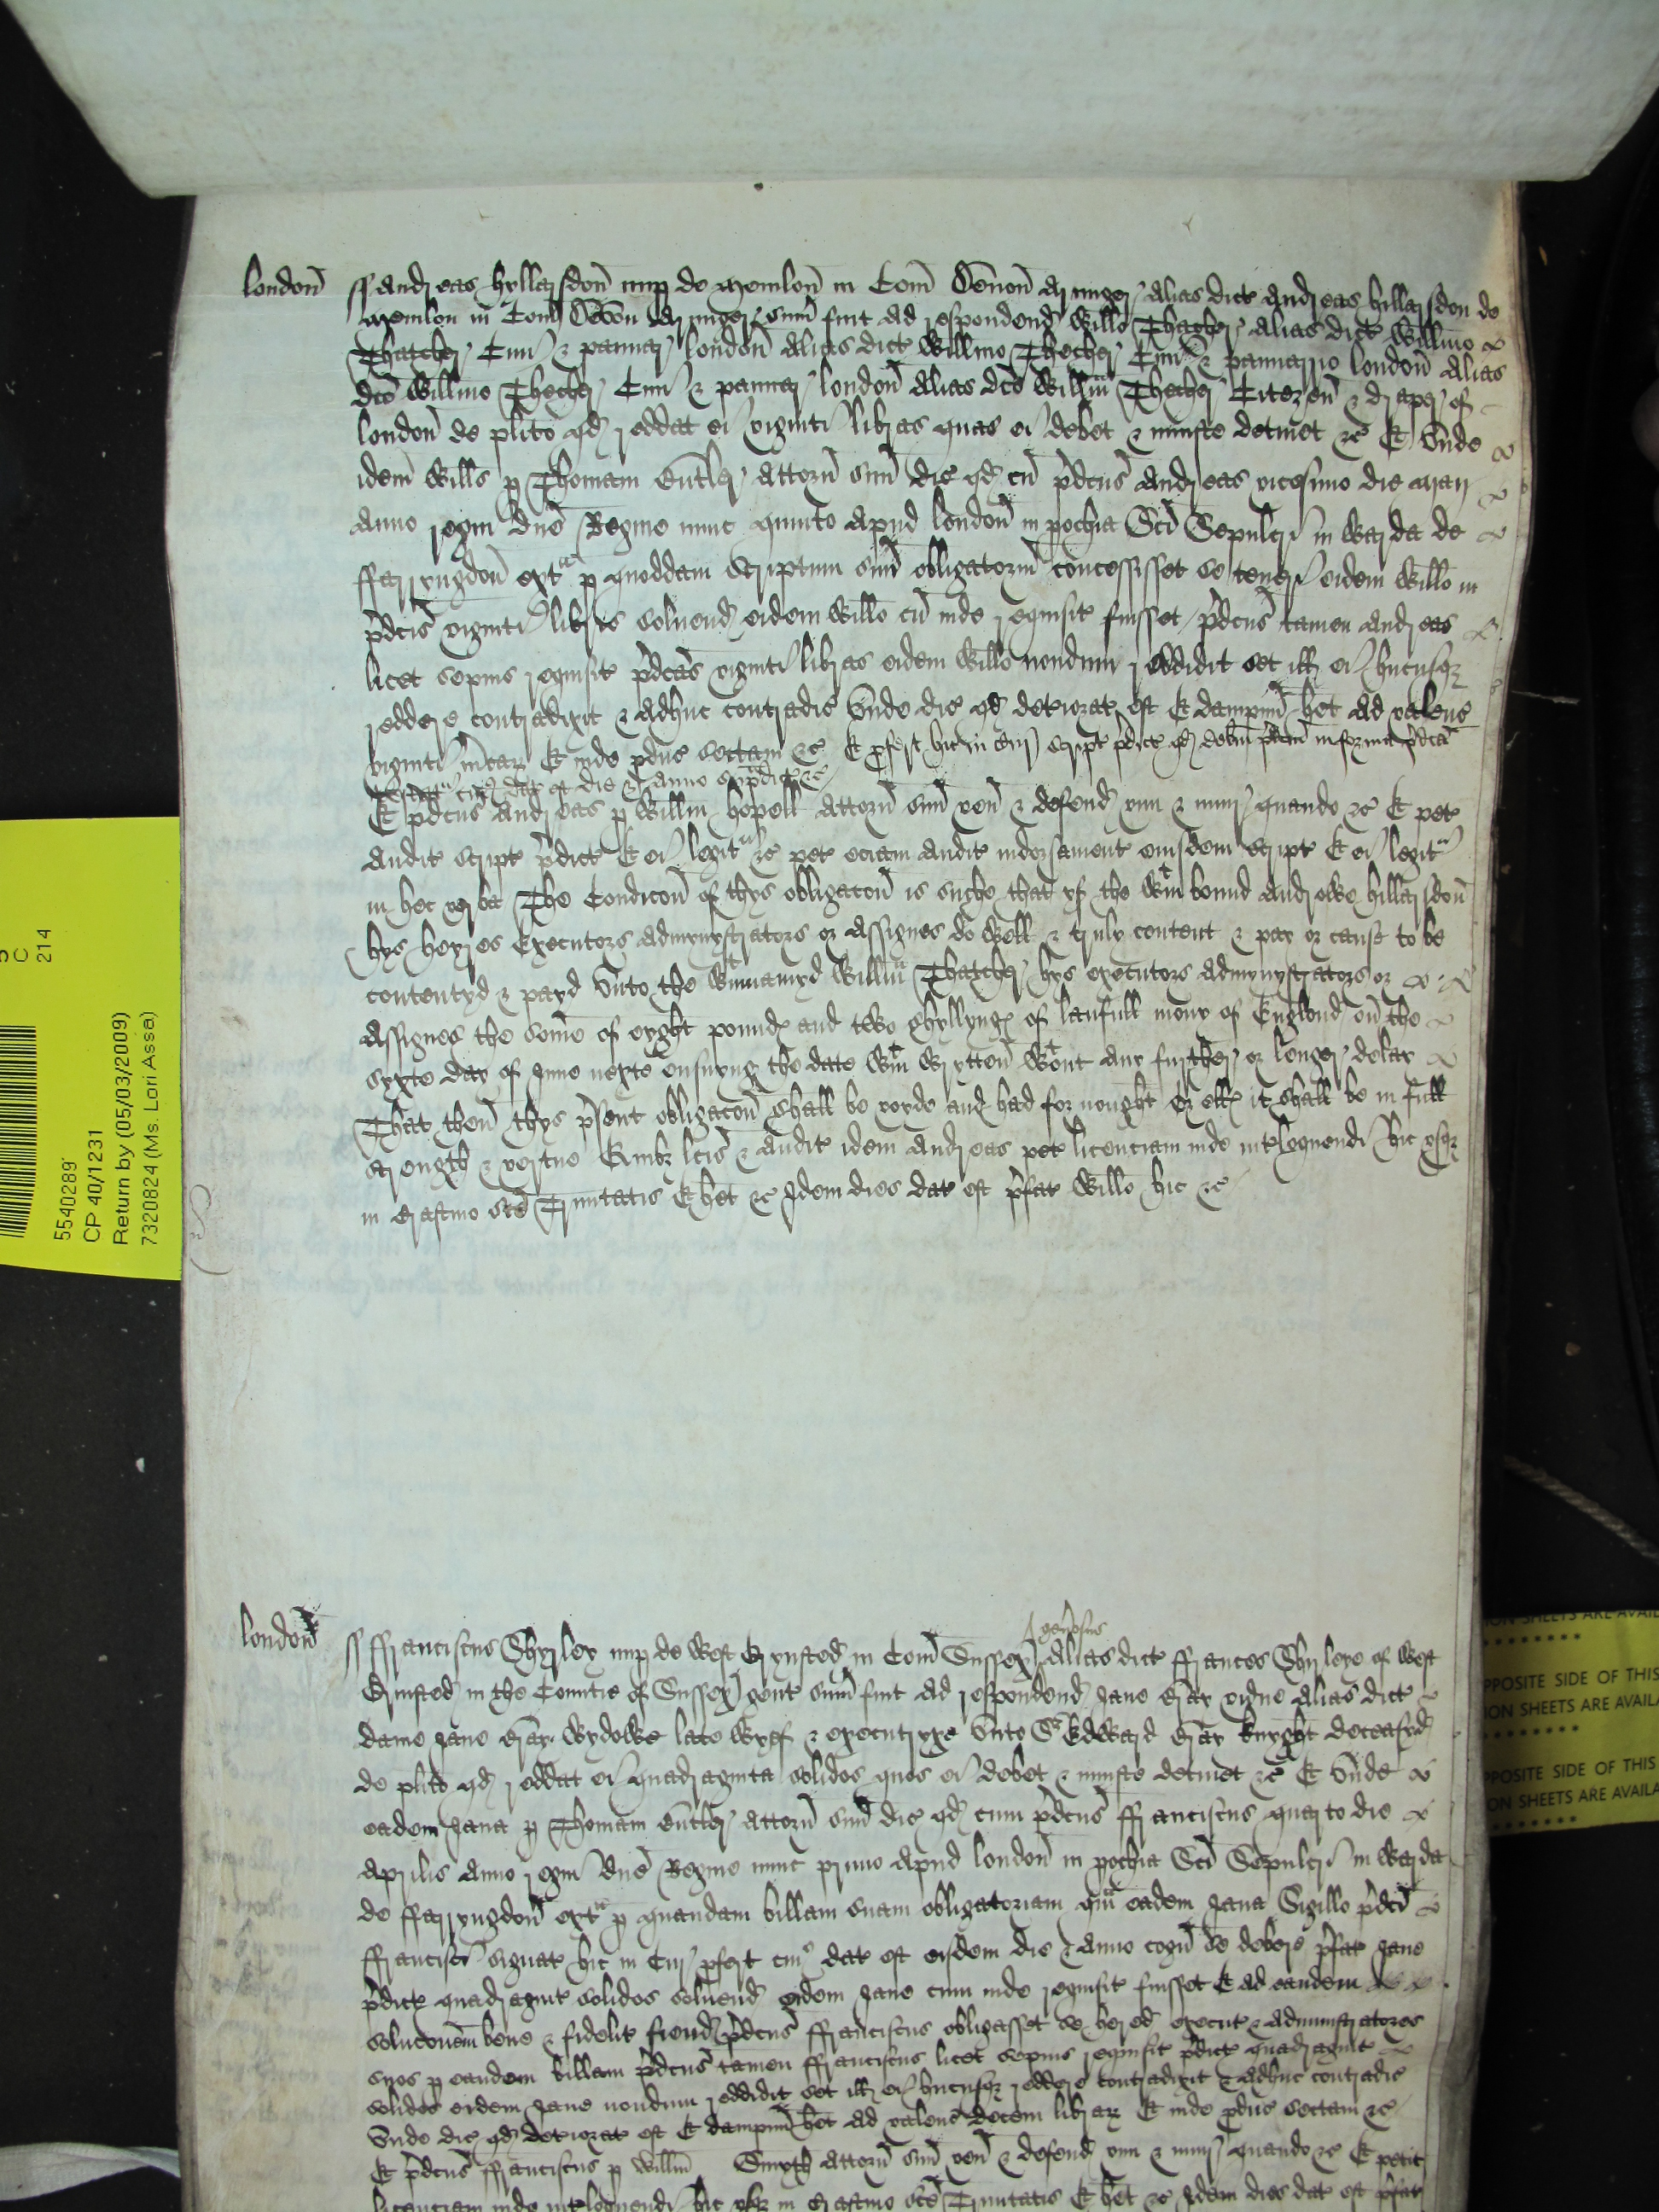 londoñ ss Andreas hyllarsdoñ nup de Memloñ in Com̃ Devoñ Armiger alias dict Andreas hillarsdon de
Memlon in Com̃ Devoñ Armiger sum̃ fuit ad respondend Willo Thatcher alias dict Willmo
Thatcher Civi & pannar londoñ alias dict Willmo Thecher Civi & pannario londoñ alias
dco Willmo Thecher Civi & pannar londoñ alias dco Willm̃ Thecher Citezeñ & draper of
londoñ de plito qd reddat ei viginti libras quas ei debet & iniuste detinet &c Et unde
idem Wills p Thomam Butler attorñ suũ dic qd cũ pdcus Andreas vicesimo die Maii
anno regni dne Regine nunc quinto apud londoñ in pochia Sci Sepulcri in Warda de
ffaryngdoñ ext p quoddam scriptum suũ obligatoriũ concessisset se teneri eidem Willo in
pdcis viginti libris solvend eidem Willo cũ inde requisit fuisset pdcus tamen Andreas
licet sepius requisit pdcas viginti libras eidem Willo nondum reddidit set ill ei hucusq
reddere contradixit & adhuc contradic unde dic qd deteriorat est Et dampnũ het ad valenc
viginti marcar Et inde pduc sectam &c Et pfert hic in Cur script pdict qd debitũ pdcm in forma pdca
testat cuius dat est die & anno supdict &c
Et pdcus Andreas p Willm hopell attorñ suũ veñ & defend vim & iniur quando &c Et pet
audit script pdict Et ei legit &c pet eciam audit indorsament eiusdem script Et ei legit
in hec verba The Condicoñ of thys obligacoñ is suche that yf the wtin bound Androwe hillarsdoñ
hys heyres Executors admynystrators or assignes do well & truly content & pay or cause to be
contentyd & payd unto the wtinnamyd Willm̃ Thatcher hys executors admynystrators or
assignes the some of eyght pounds and two shyllyngs of laufull money of Englond on the
syxte day of June nexte ensuyng the date wtin wryttoñ wtout any further or longer delay
That then thys psent obligacoñ shall be voyde and had for nought Or ells it shall be in full
strength & vertue Quibz lcis & audit idem Andreas pet licenciam inde intloquendi hic usqz
in Crastino sce Trinitatis Et het &c Idem dies dat est pfat Willo hic &c
londoñ ss ffranciscus Shyrley nup de West Grynsted in Com̃ Sussex generosus alias dict ffrances Shyrleye of West
Grinsted in the Countie of Sussex gent sum̃ fuit ad respondend Jane Gray vidue alias dict
dame Jane Gray Wydowe late wyef & executryxe unto Sr Edward Gray knyght deceasyd
de plito qd reddat ei quadraginta solidos quos ei debet & iniuste detinet &c Et unde
eadem Jana p Thomam Butler attorñ suũ dic qd cum pdcus ffranciscus quarto die
Aprilis anno regni dne Regine nunc primo apud londoñ in pochia Sci Sepulcri in Warda
de ffaryngdoñ ext p quandam billam suam obligatoriam qm̃ eadem Jana Sigillo pdci
ffrancisci signat hic in Cur pfert cuius dat est eisdem die & anno cogñ se debere pfat Jane
pdict quadragint solidos solvend eidem Jane cum inde requisit fuisset Et ad eandem
solucionem bene & fidelit fiend pdcus ffranciscus obligasset se hered execut & administratores
suos p eandem billam pdcus tamen ffranciscus licet sepius requisit pdict quadragint
solidos eidem Jane nondum reddidit set ill ei hucusqz reddere contradixit & adhuc contradic
Unde dic qd deteriorat est Et dampnũ het ad valenc decem librar Et inde pduc sectam &c
Et pdcus ffranciscus p Willm Smyth attorñ suũ veñ & defend vim & iniur quando &c Et petit
licenciam inde intloquendi hic usqz in Crastino sce Trinitatis Et het &c Idem dies dat est pfat
214
5540289
CP 40/1231
Return by (05/03/2009)
7320824 (Ms. Lori Assa)
OPPOSITE SIDE OF THIS
ION SHEETS ARE AVAILA
OPPOSITE SIDE OF THIS
ION SHEETS ARE AVAILA